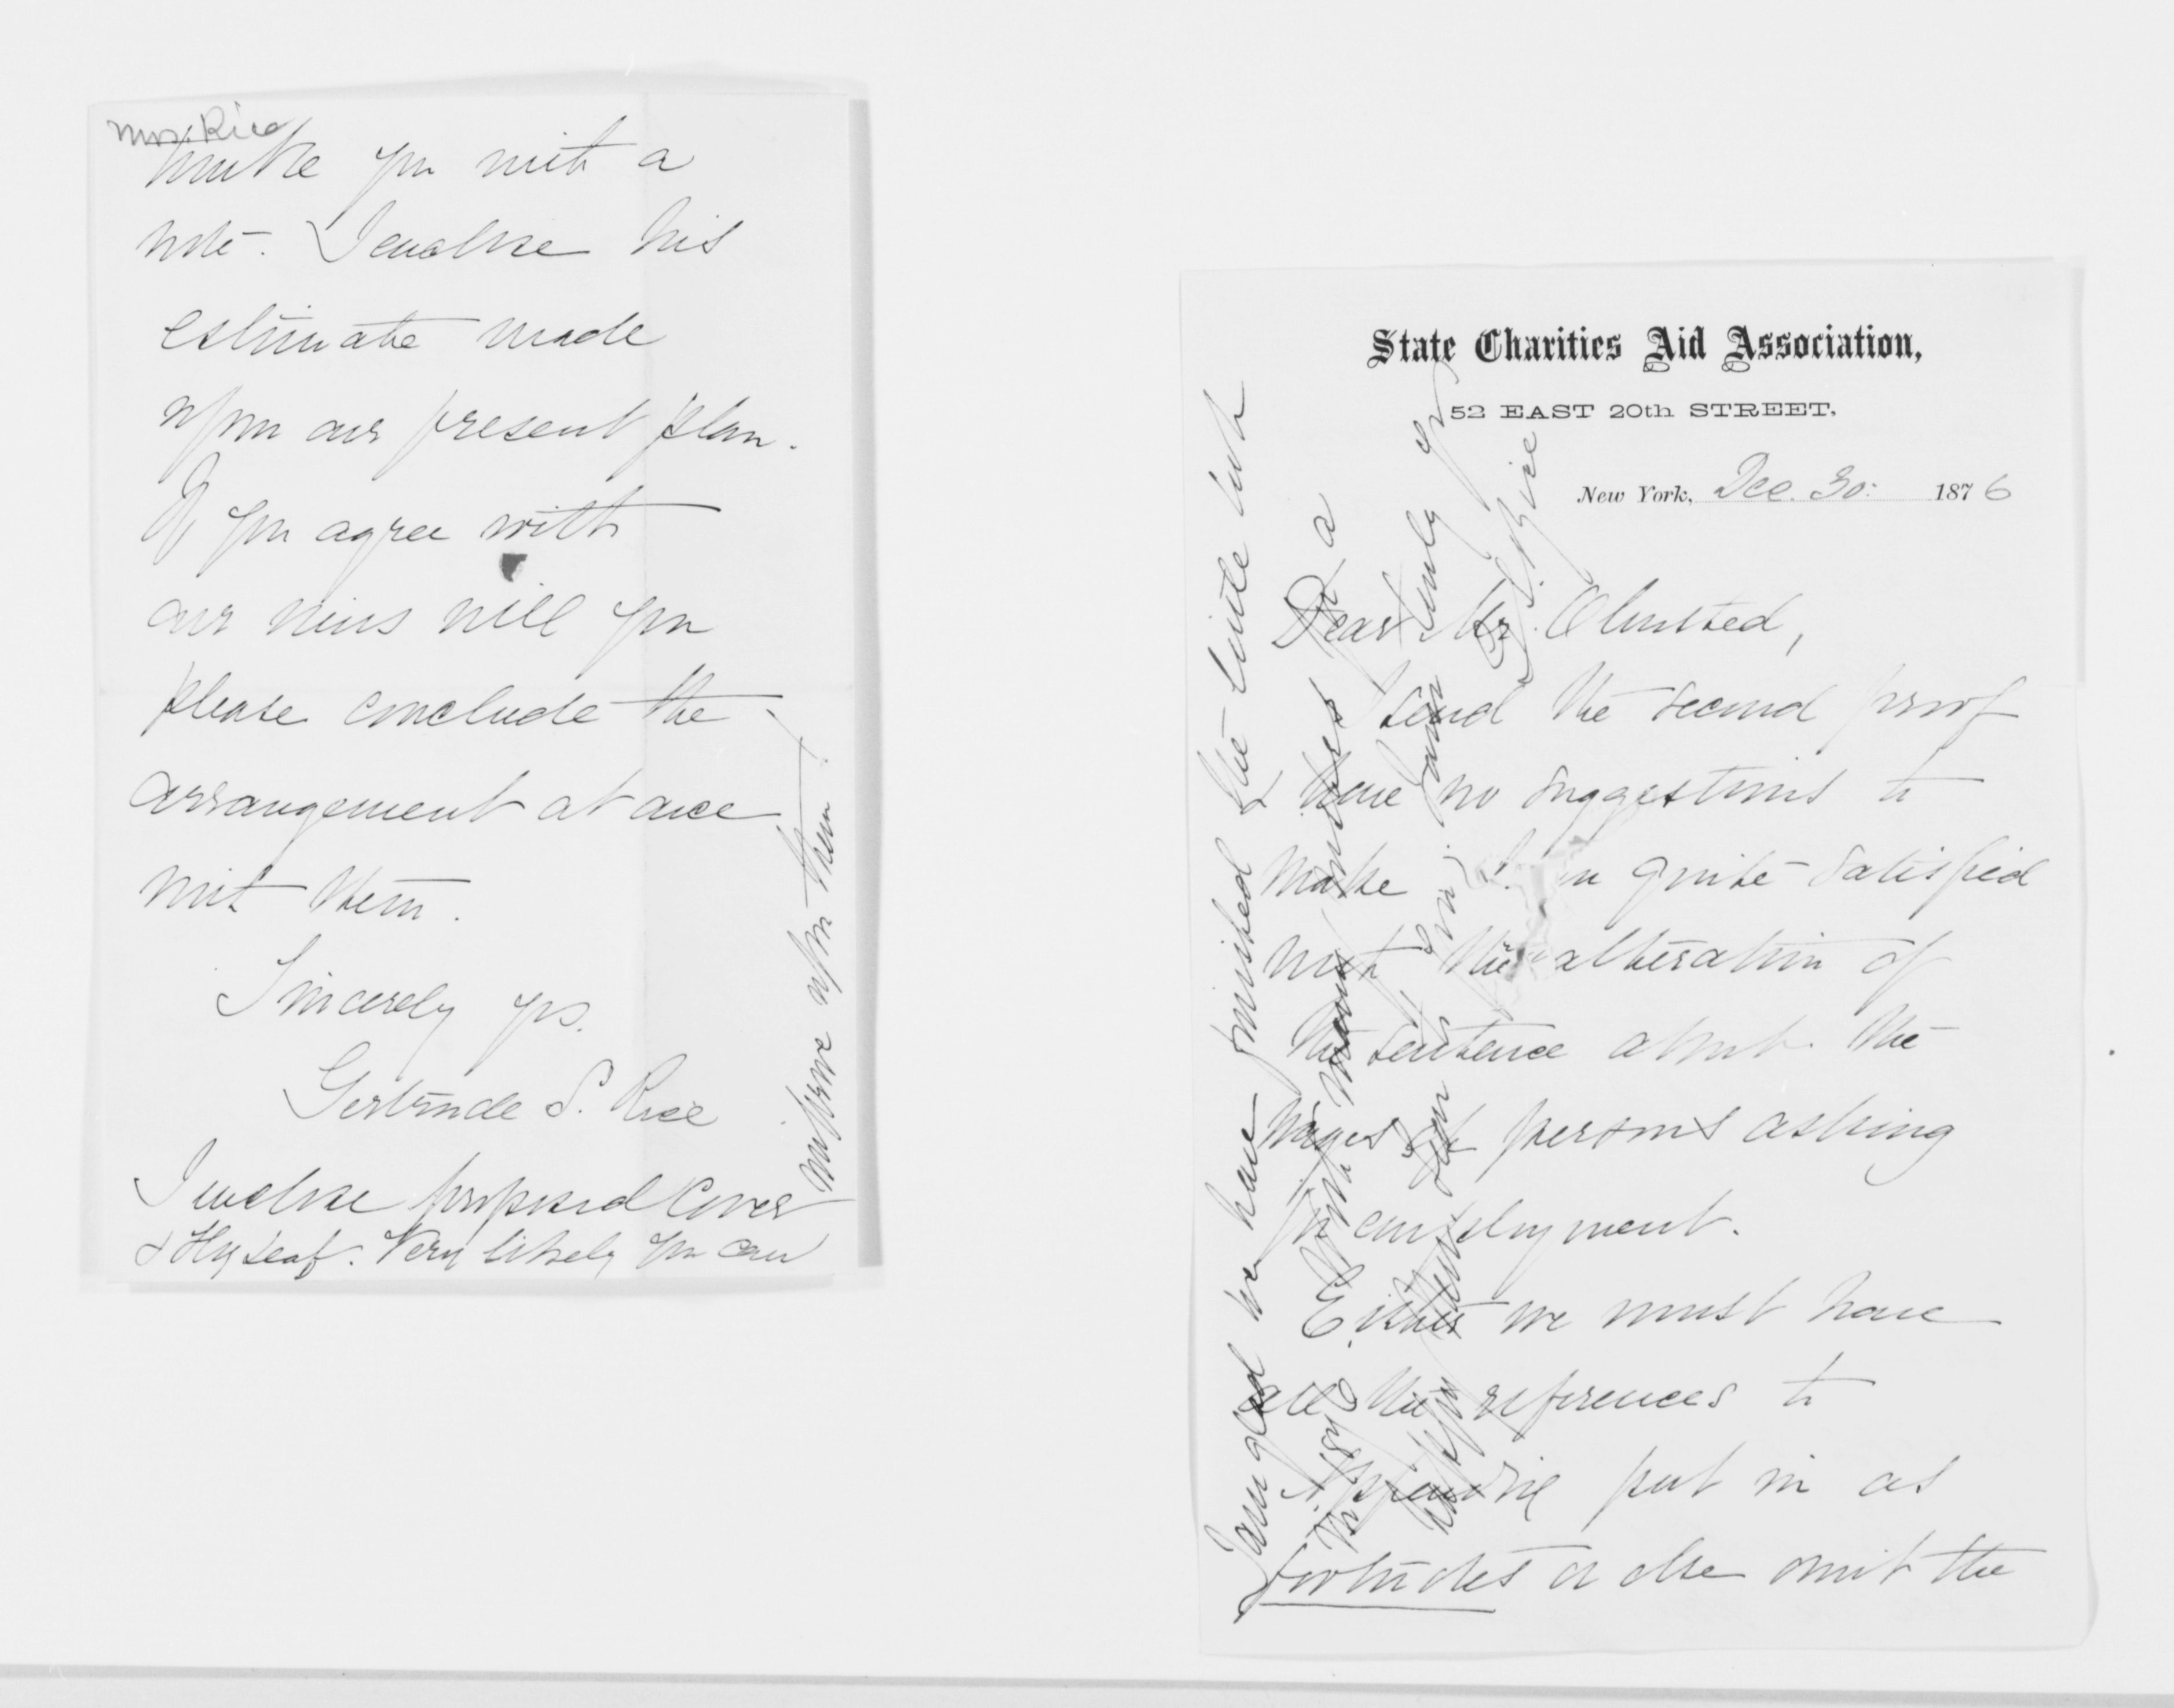 Mrs. Rice
trouble you with a
note. I enclose his
estimate made
upon our present plan.
If you agree with
our views will you
please conclude the
arrangement at once
with them.
Sincerely yrs.
Gertrude S. Rice
I enclose proposed cover
& fly leaf. Very likely you can
improve upon them!
State Charities Aid Association,
52 EAST 20th STREET,
New York, Dec. 30. 1876
Dear Mr. Olmsted,
I send the second proof
& have no suggestions to
make. I am quite satisfied
with the alteration of
the sentence about the
wages of persons asking
for employment.
Either we must have
all the references to
Appendix put in as
footnotes or else omit the
we have finished the little
Rice